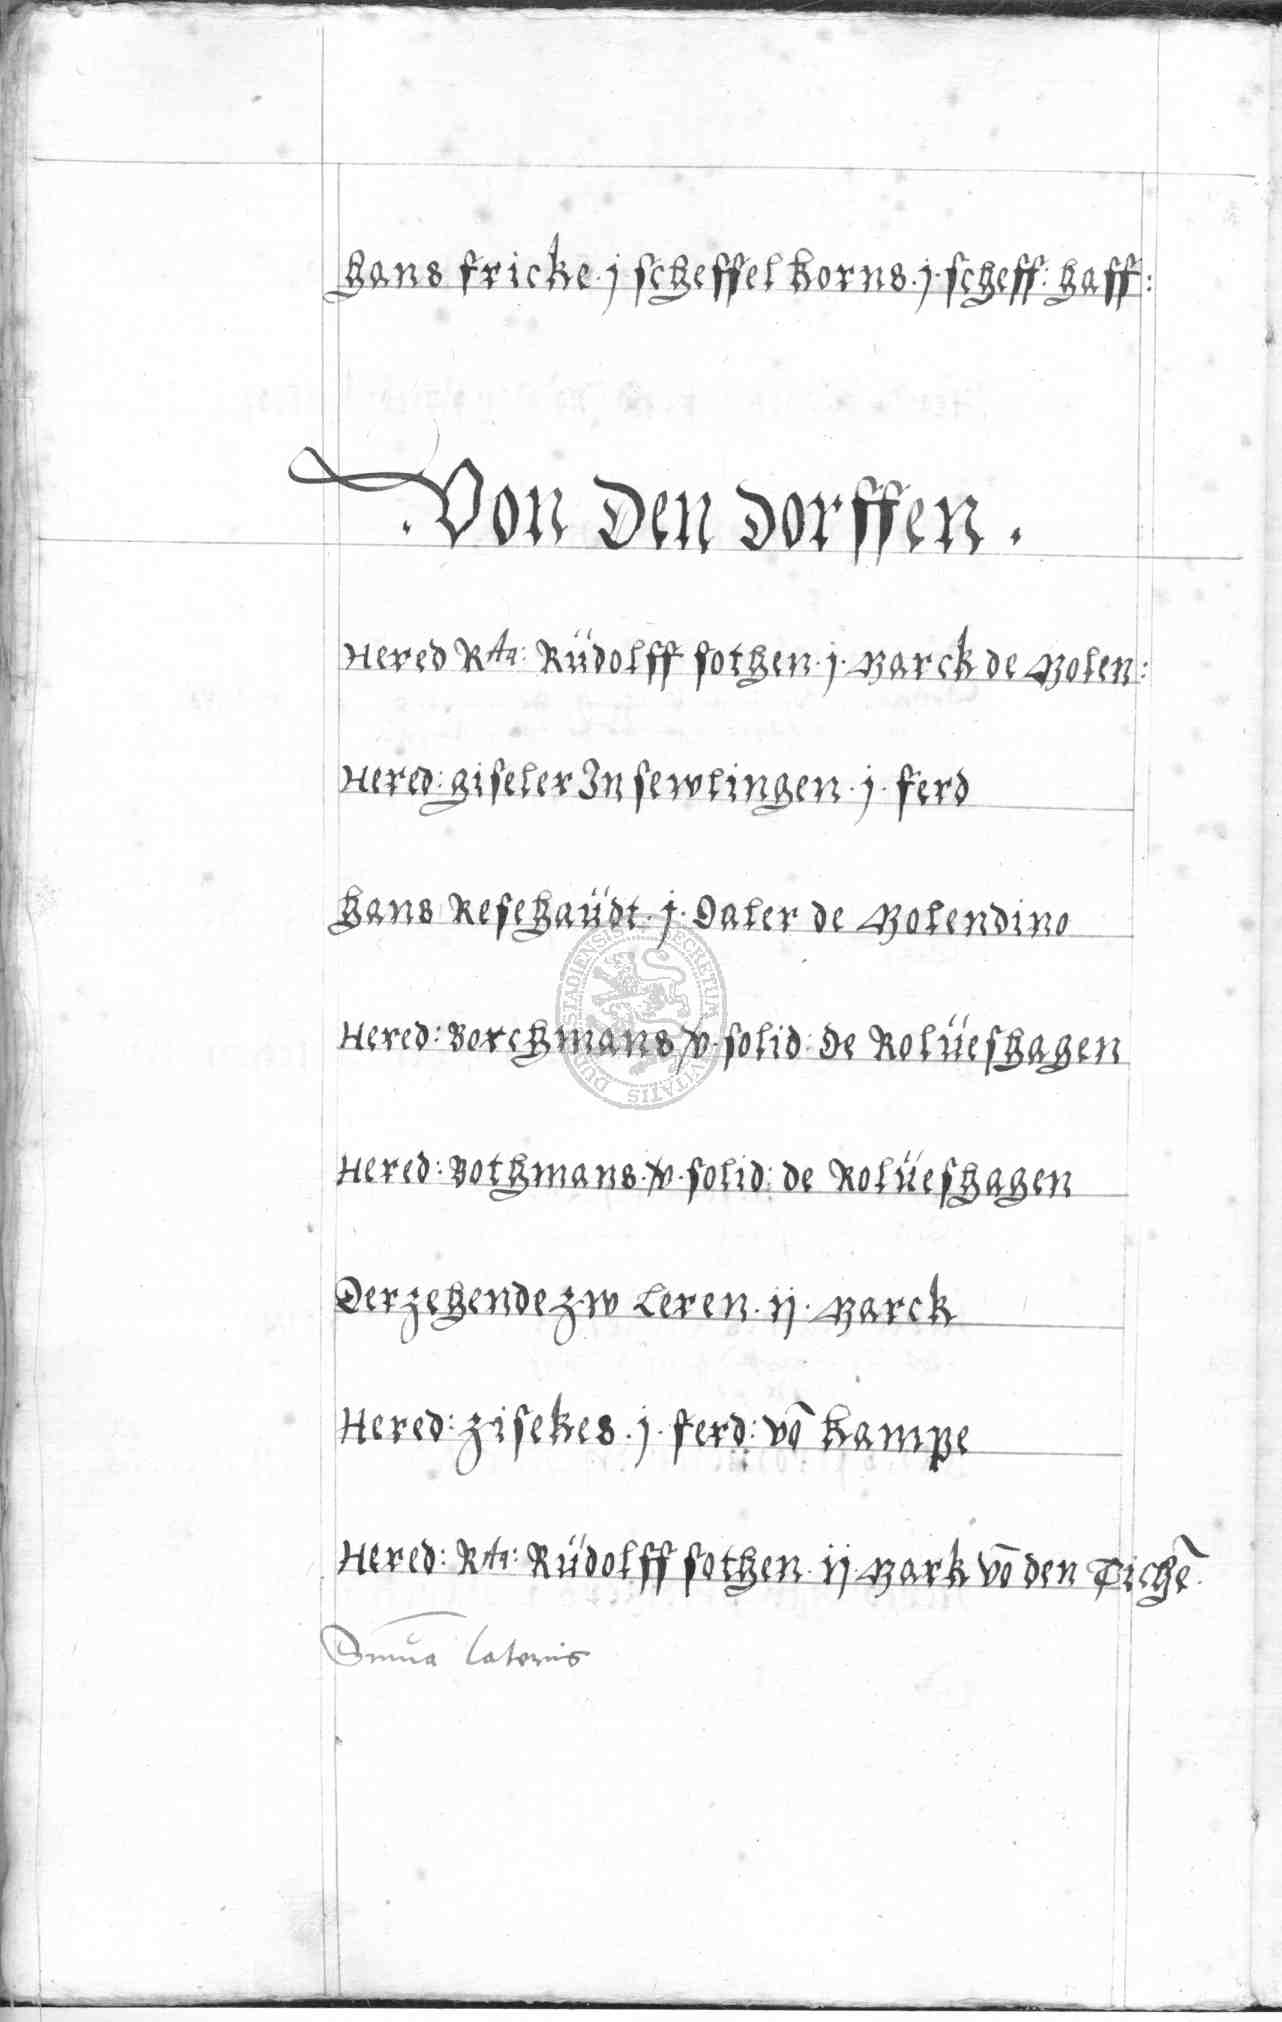 Hans fricke · j scheffel korns · j · scheff: haff:
· Von Den Dorffen ·
Hered Rtr: Rüdolff sothen · j · Marck de Molen:
Hered: giseler In sewlingen · j · ferd
Hans Resehaüdt · j · Daler de Molendino
Hered: Borchmans · v · solid: De Rolüeshagen
Hered: Bothmans · v · solid: de Rolüeshagen
Der zehende zw Leren · ij · Marck
Hered: zisekes · j · ferd: vō kampe
Hered: Rtr: Rüdolff sothen · ij · Mark vō den Tichē ·
Suma lateris